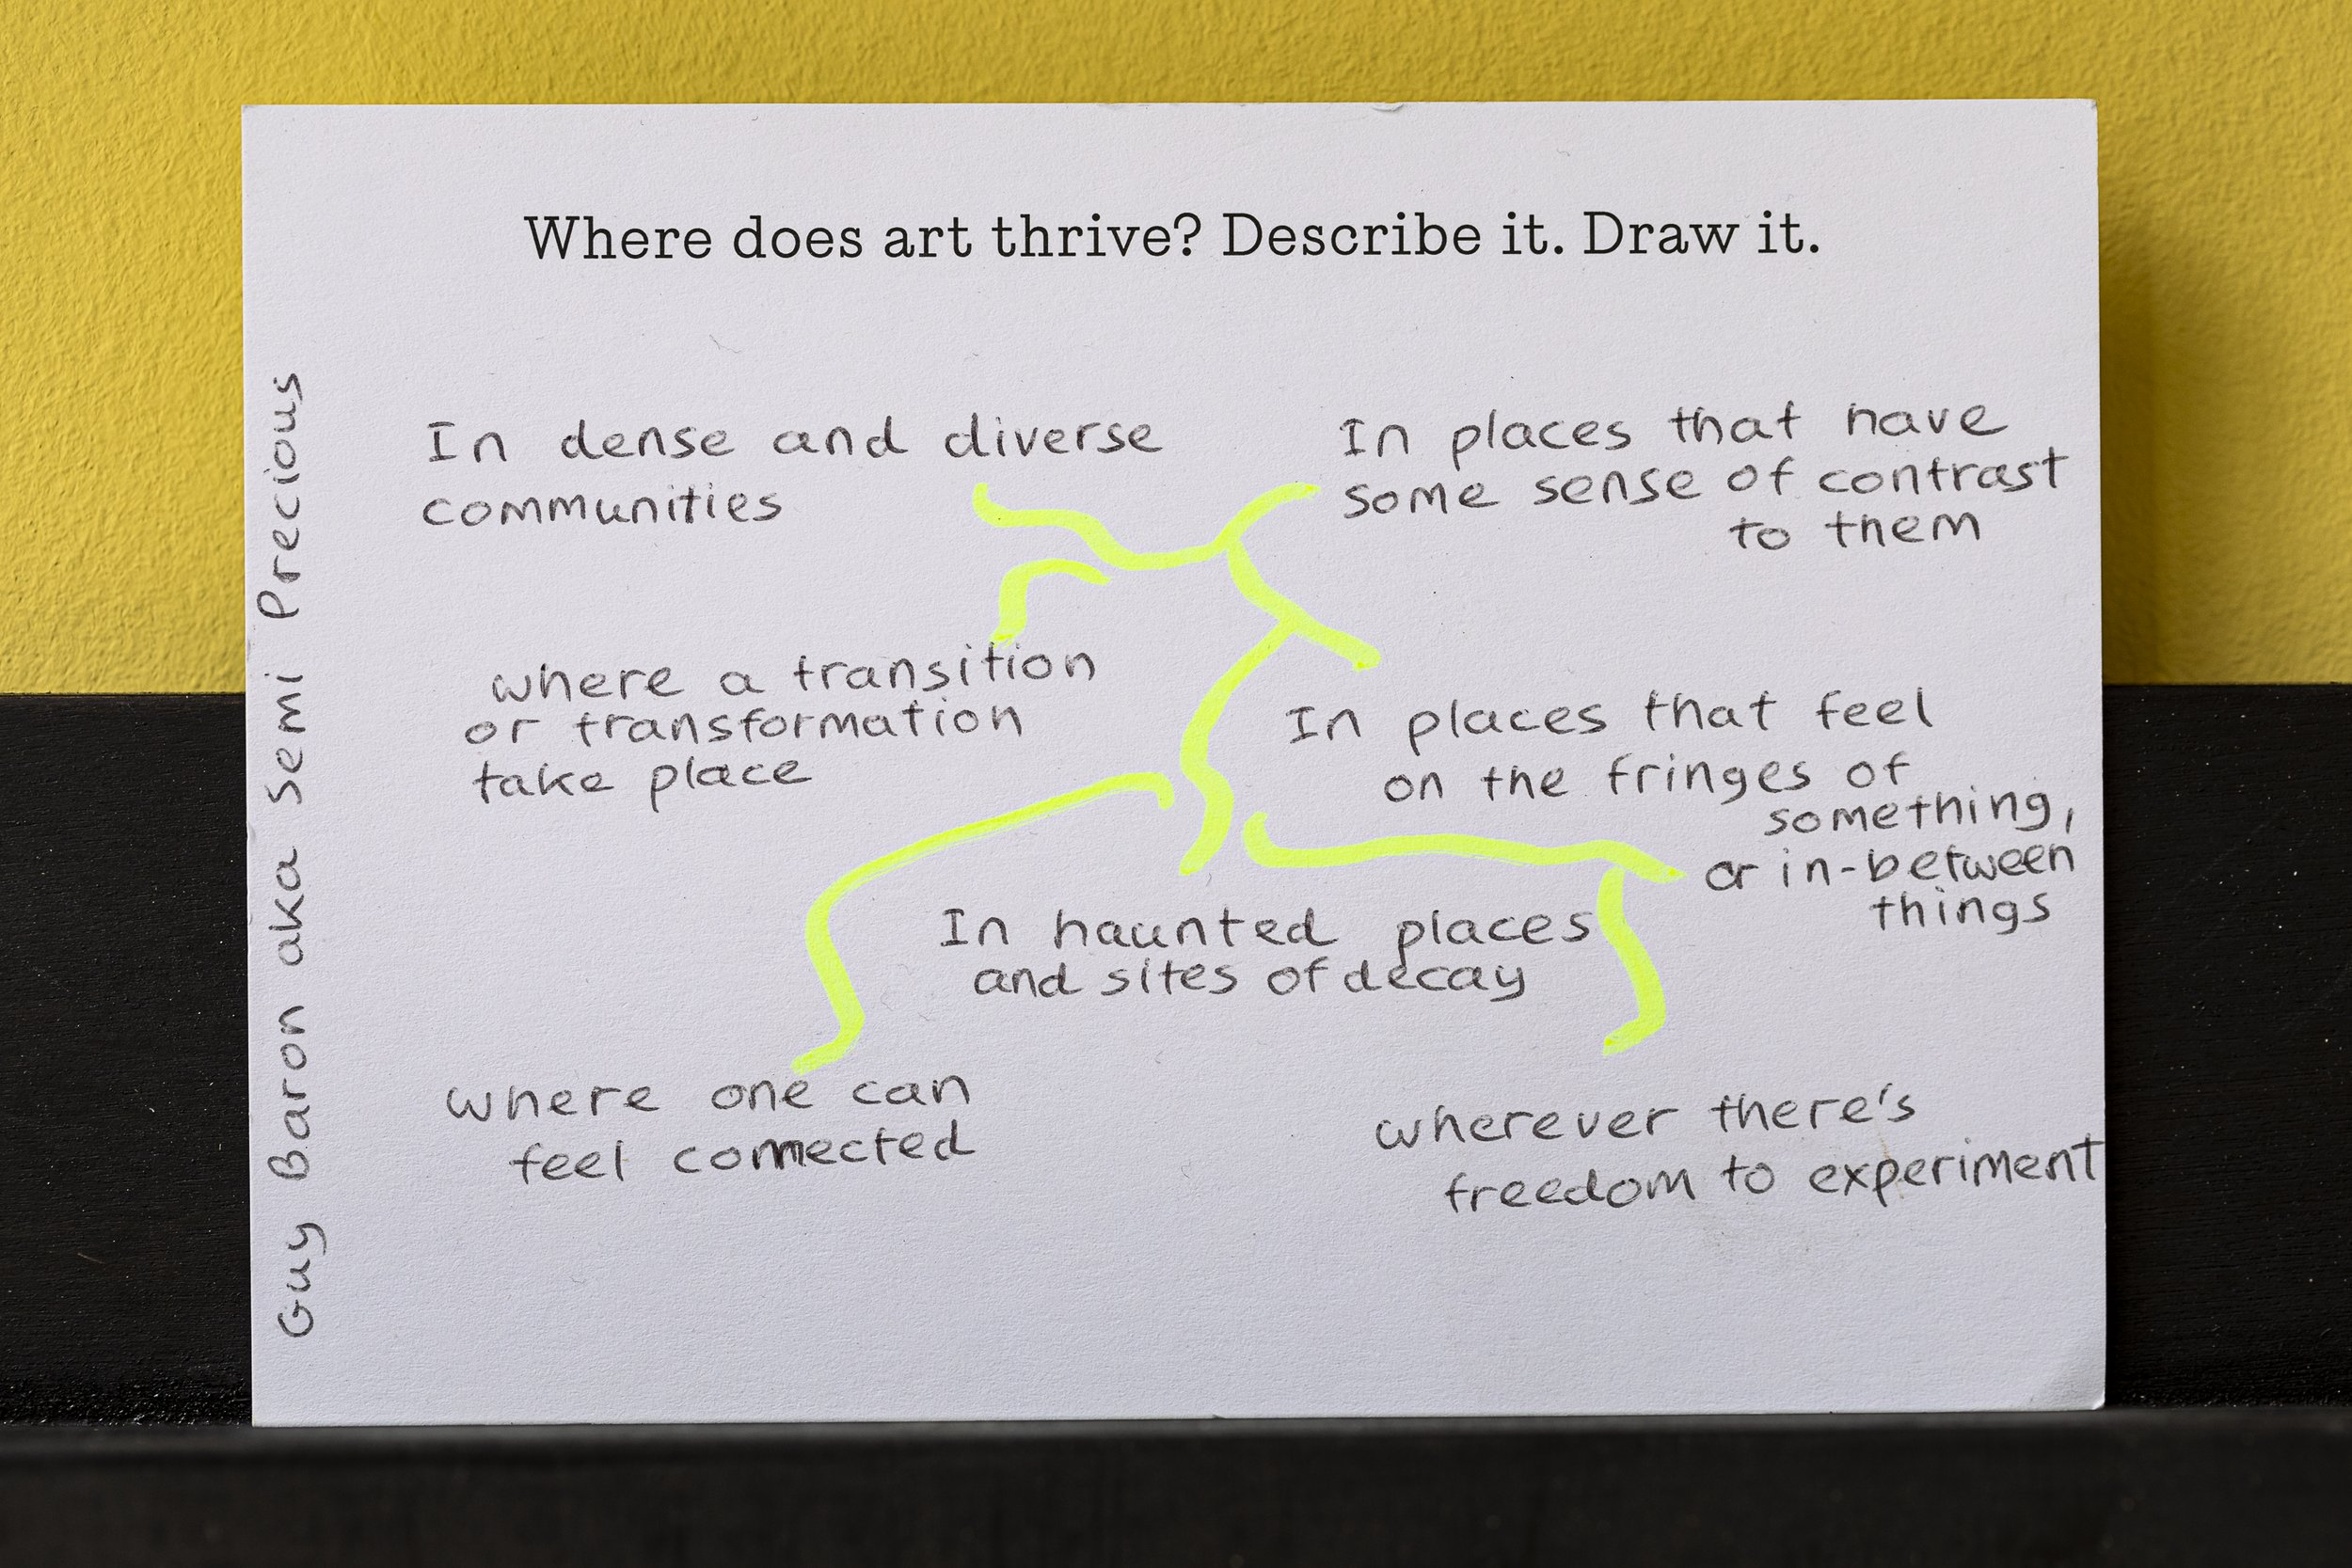 Where does art thrive? Describe it. Draw it.
In dense and diverse
communities
In places that have
some sense of contrast
to them
where a transition
or transformation
take place
In places that feel
on the fringes of
something,
or in-between
things
In haunted places
and sites of decay
where one can
feel connected
wherever there's
freedom to experiment
Guy Baron aka Semi Precious